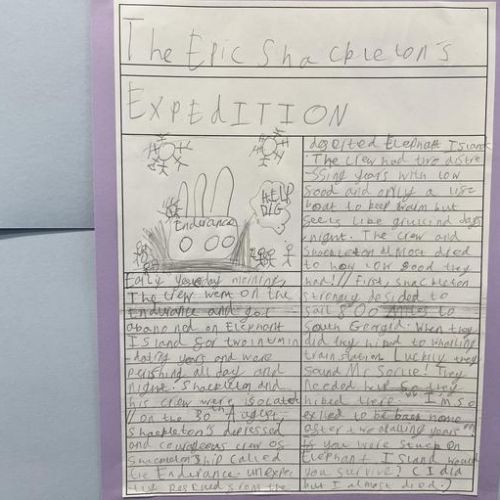 The Epic Shackleton's
EXPEdITION
HELP
DIG
Endurance
Early yesterday morning,
The crew went on the
Endurance and got
abanoned on Elephant
Island for two intimin
-dating years and were
perishing all day and
night. Shackleton and
his crew were isolated
// on the 30th August
Shackleton's depressed
and courageous crew os
Ship called
the Endurance unexpec
the rescued from the
deserted Elephant Island
. The crew had two distre
ssing years with low
food and only a life
boat to keep warm but
feels like gruling days
night. The crew and
Shackleton almost died
to how low food they
had! // First, Shackleton
strongly desided to
sail 800 miles to
South Georgia. When they
did they hiked to whailing
train station. Luckily they
found Mr Sorlle! They
needed help so they
hiked there. "I'm so
exited to be back home
after two
If you were stuck on
Elephant Island would
you survive? (I did
but I almost died.)